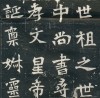 世祖之世
中尚書尋
孝文皇帝
誕稟姝靈